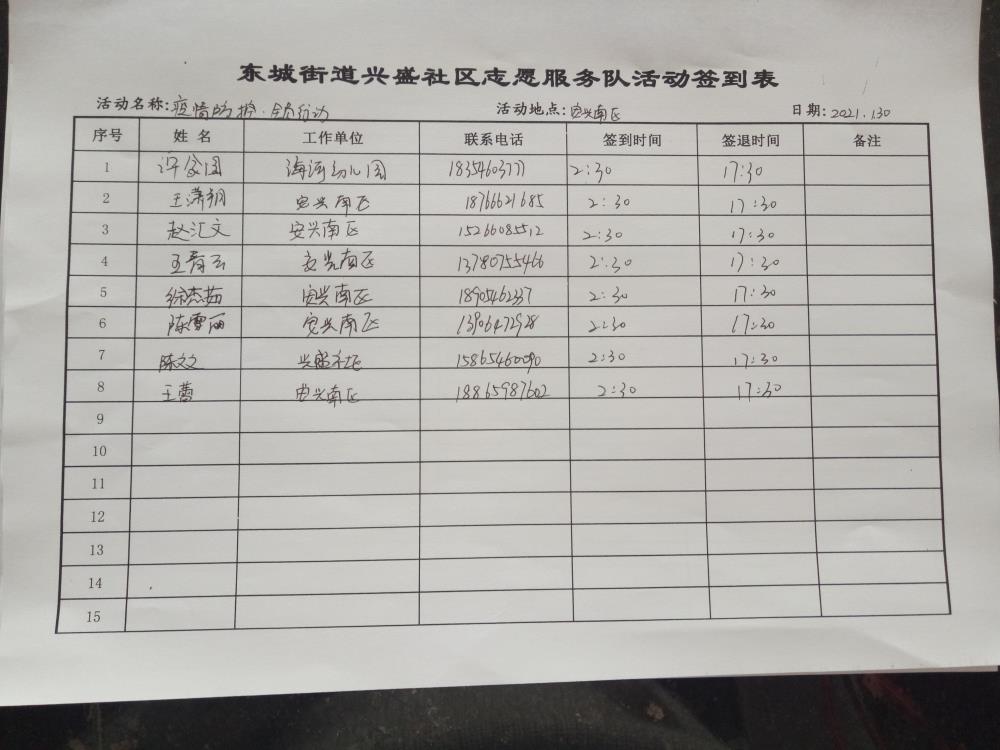 东城街道兴盛社区志愿服务队活动签到表
活动名称:疫情防控·全员行动 活动地点:安兴南区 日期:2021.1.30
序号 姓名 工作单位 联系电话 签到时间 签退时间 备注
1 海河幼儿园 18354603777 2:30 17:30
2 王潇翎 安兴南区 18766621685 2:30 17:30
3 赵汇文 安兴南区 15266085512 2:30 17:30
4 王春云 安兴南区 13780755466 2:30 17:30
5 徐杰茹 安兴南区 18905462337 2:30 17:30
6 陈雪丽 安兴南区 13906472928 2:30 17:30
7 陈文文 兴盛社区 15865460090 2:30 17:30
8 王蕾 安兴南区 18865987602 2:30 17:30
9
10
11
12
13
14
15